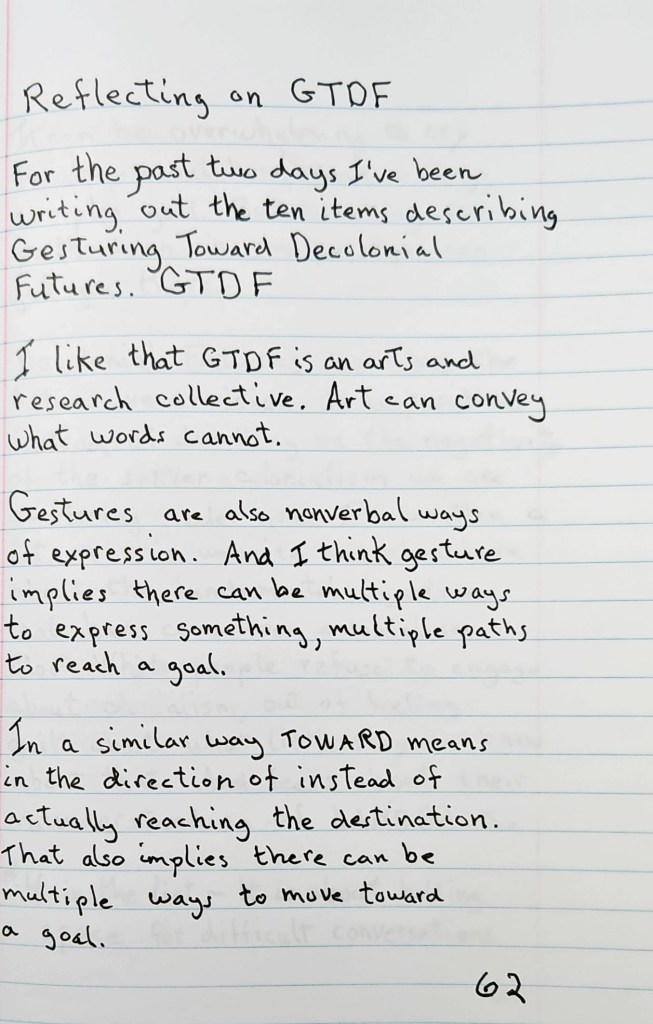 Reflecting on GTDF
For the past two days I've been
writing out the ten items describing
Gesturing Toward Decolonial
Futures. GTDF
I like that GTDF is an arts and
research collective. Art can convey
what words cannot.
Gestures are also nonverbal ways
of expression. And I think gesture
implies there can be multiple ways
to express something, multiple paths
to reach a goal.
In a similar way TOWARD means
in the direction of instead of
actually reaching the destination.
That also implies there can be
multiple ways to move toward
a goal.
62